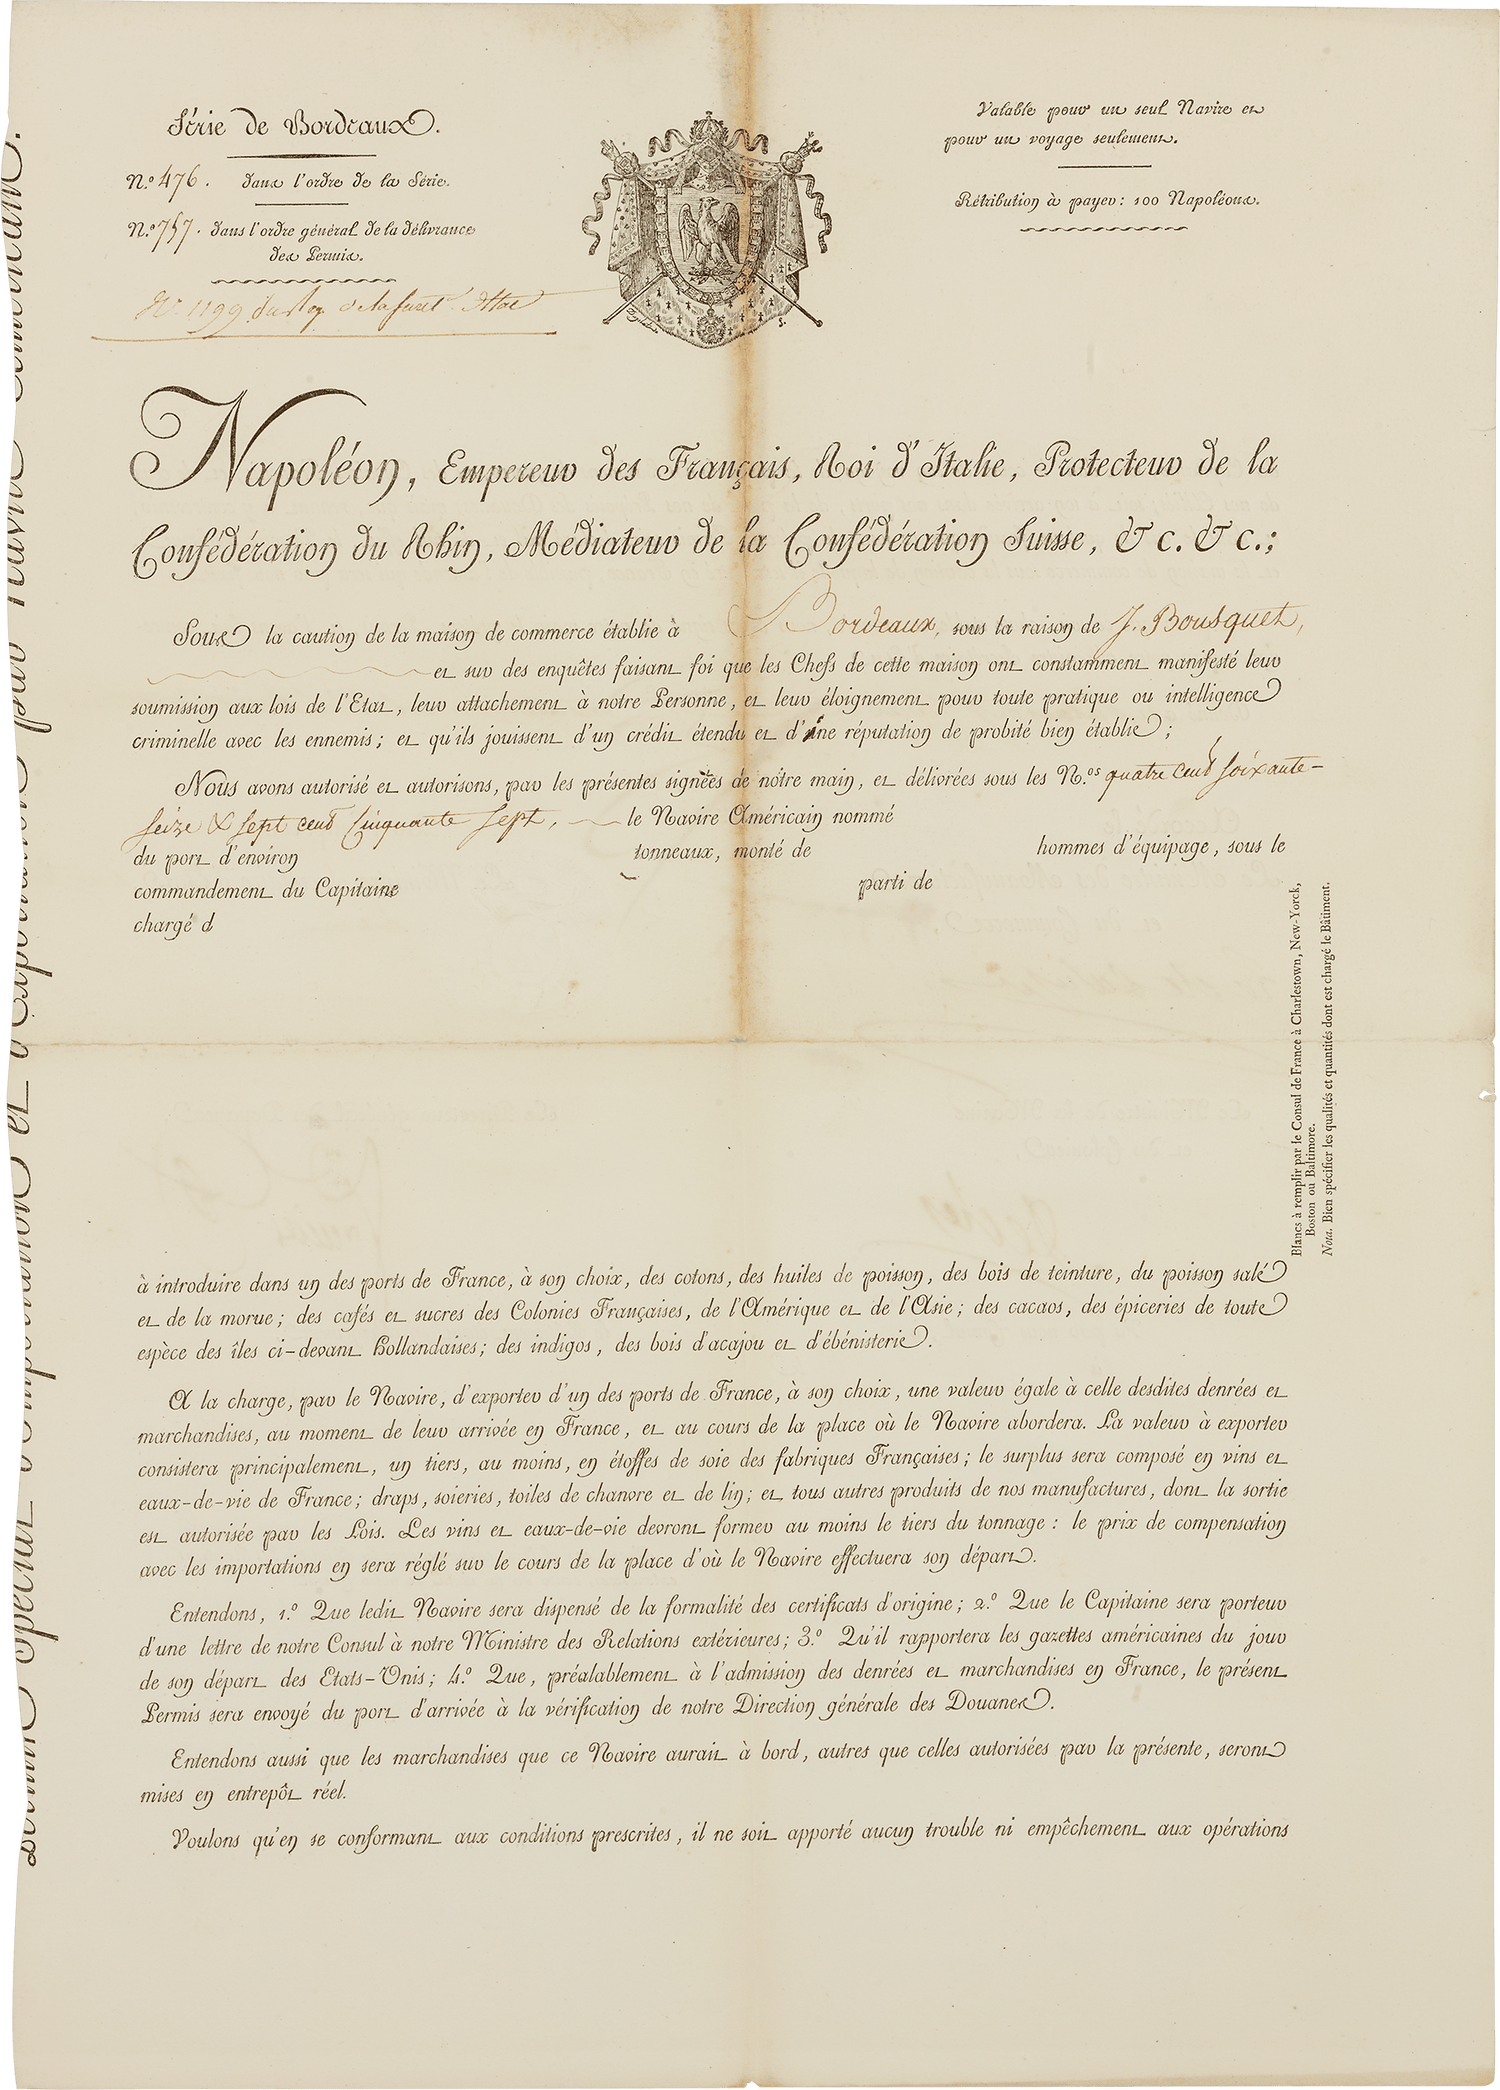 Série de Bordeaux.
N.º 476. dans l'ordre de la Série.
N.º 757. dans l'ordre général de la délivrance
des Permis.
N.º 1199 du
Valable pour un seul Navire et
pour un voyage seulement.
Rétribution à payer : 100 Napoléons.
Napoléon, Empereur des Français, Roi d'Italie, Protecteur de la
Confédération du Rhin, Médiateur de la Confédération Suisse, & c. & c.;
Sous la caution de la maison de commerce établie à Bordeaux, sous la raison de J. Bousquet,
et sur des enquêtes faisant foi que les Chefs de cette maison ont constamment manifesté leur
soumission aux lois de l'Etat, leur attachement à notre Personne, et leur éloignement pour toute pratique ou intelligence
criminelle avec les ennemis; et qu'ils jouissent d'un crédit étendu et d'une réputation de probité bien établie;
Nous avons autorisé et autorisons, par les présentes signées de notre main, et délivrées sous les N.os quatre cent soixante-
seize & sept cent cinquante sept, le Navire Américain nommé
du port d'environ tonneaux, monté de hommes d'équipage, sous le
commandement du Capitaine parti de
chargé d
Blancs à remplir par le Consul de France à Charlestown, New-Yorck,
Boston ou Baltimore.
Nota. Bien spécifier les qualités et quantités dont est chargé le Bâtiment.
à introduire dans un des ports de France, à son choix, des cotons, des huiles de poisson, des bois de teinture, du poisson salé
et de la morue; des cafés et sucres des Colonies Françaises, de l'Amérique et de l'Asie; des cacaos, des épiceries de toute
espèce des îles ci-devant Hollandaises; des indigos, des bois d'acajou et d'ébénisterie.
A la charge, par le Navire, d'exporter d'un des ports de France, à son choix, une valeur égale à celle desdites denrées et
marchandises, au moment de leur arrivée en France, et au cours de la place où le Navire abordera. La valeur à exporter
consistera principalement, un tiers, au moins, en étoffes de soie des fabriques Françaises; le surplus sera composé en vins et
eaux-de-vie de France; draps, soieries, toiles de chanvre et de lin; et tous autres produits de nos manufactures, dont la sortie
est autorisée par les Lois. Les vins et eaux-de-vie devront former au moins le tiers du tonnage : le prix de compensation
avec les importations en sera réglé sur le cours de la place d'où le Navire effectuera son départ.
Entendons, 1.º Que ledit Navire sera dispensé de la formalité des certificats d'origine; 2.º Que le Capitaine sera porteur
d'une lettre de notre Consul à notre Ministre des Relations extérieures; 3.º Qu'il rapportera les gazettes américaines du jour
de son départ des Etats-Unis; 4.º Que, préalablement à l'admission des denrées et marchandises en France, le présent
Permis sera envoyé du port d'arrivée à la vérification de notre Direction générale des Douanes.
Entendons aussi que les marchandises que ce Navire aurait à bord, autres que celles autorisées par la présente, seront
mises en entrepôt réel.
Voulons qu'en se conformant aux conditions prescrites, il ne soit apporté aucun trouble ni empêchement aux opérations